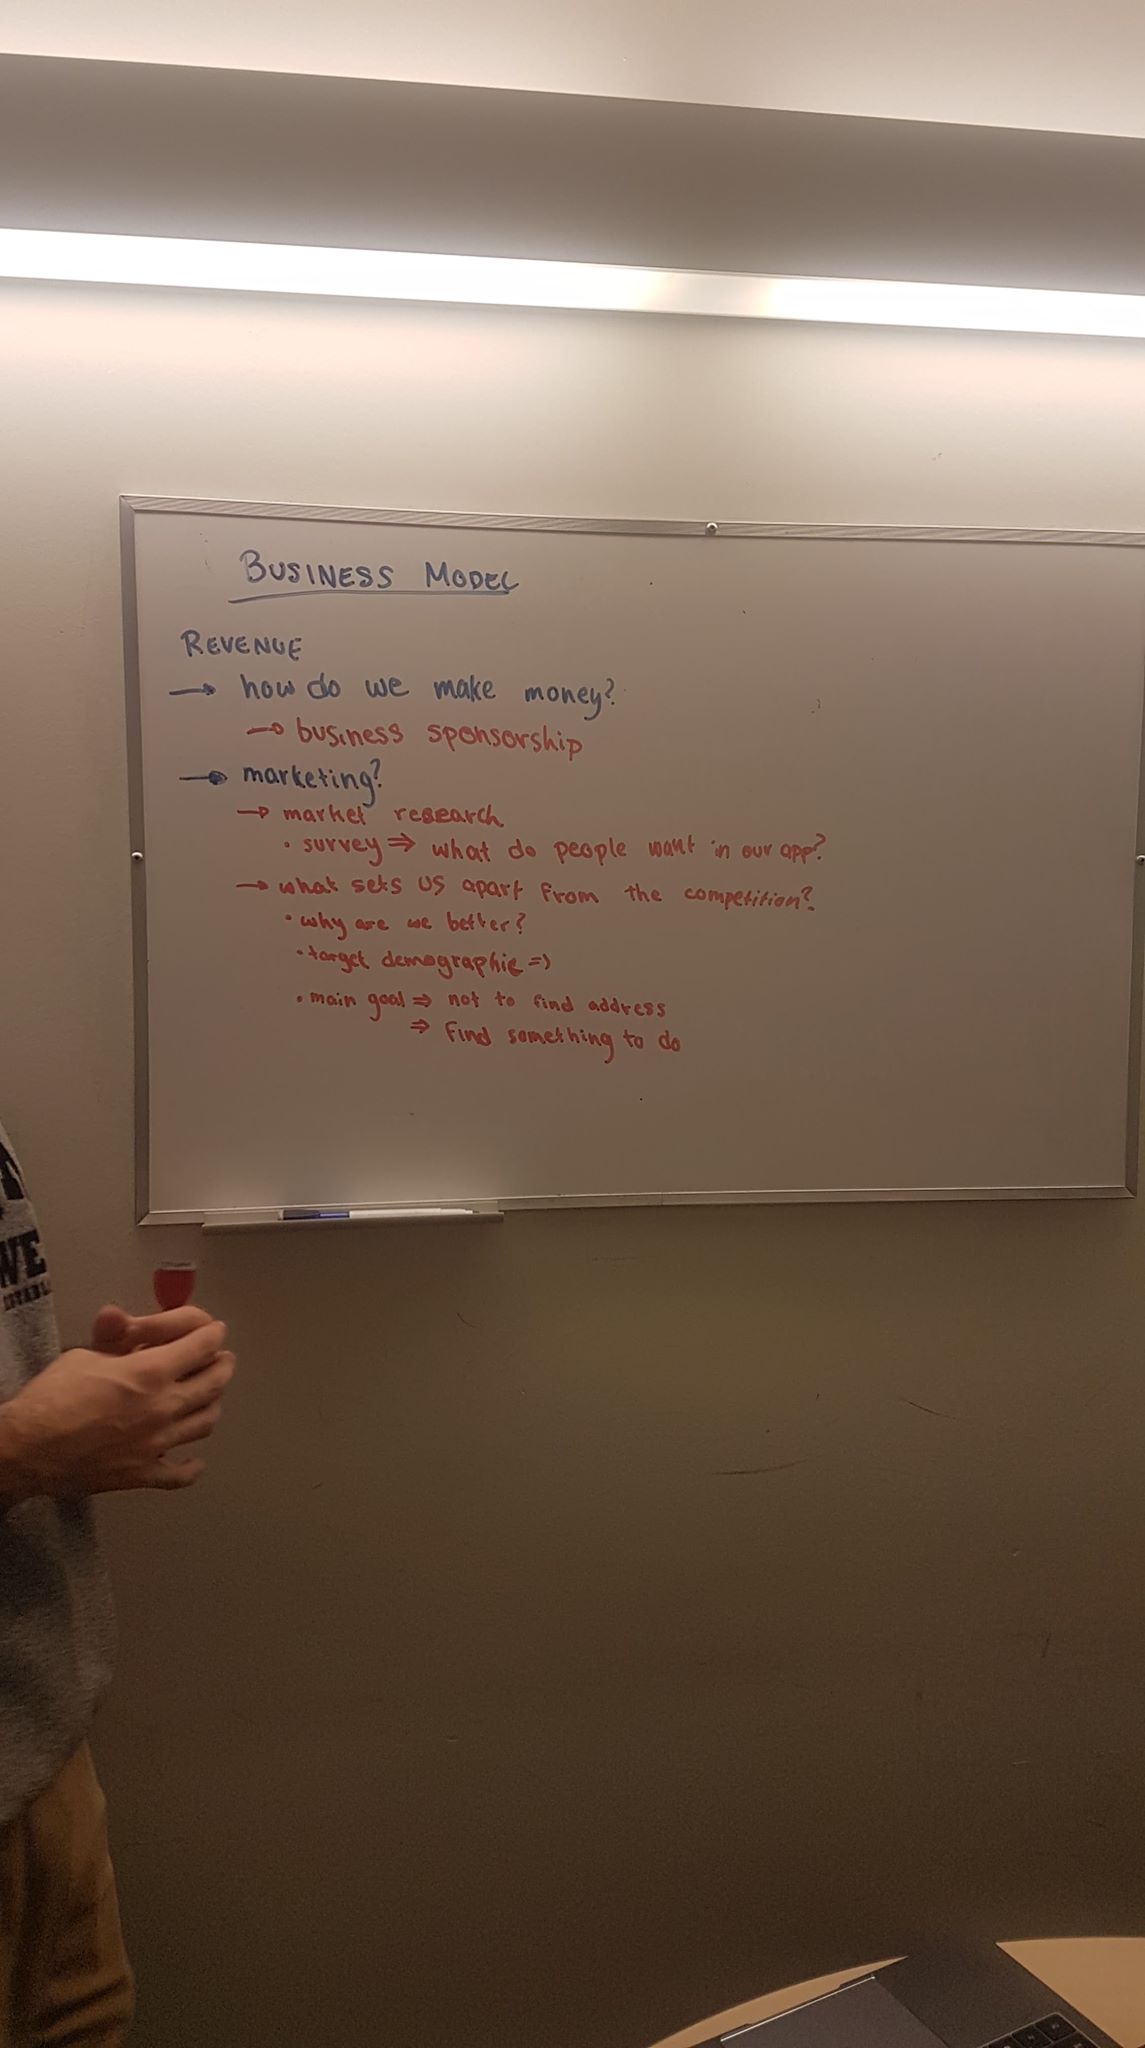 BUSINESS MODEL
REVENUE
→ how do we make money?
→ business sponsorship
→ marketing?
→ market research
• survey ⇒ what do people want in our app?
→ what sets us apart from the competition?
• why are we better?
• target demographic =>
• main goal ⇒ not to find address
⇒ find something to do
WE